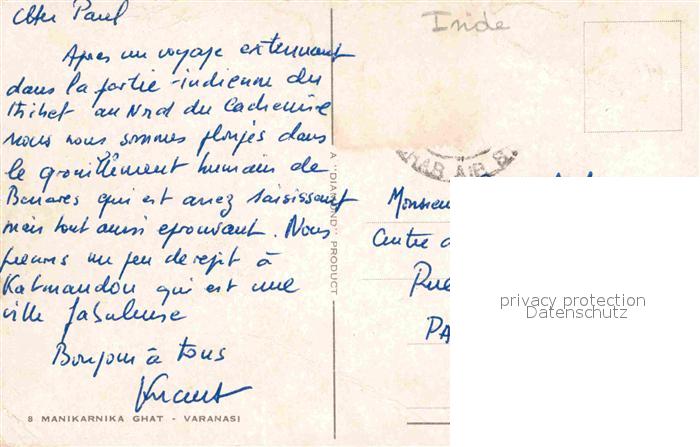 Cher Paul
Après un voyage extenuant
dans la partie indienne du
Thibet au Nord du Cachemire
nous nous sommes plongés dans
le grouillement humain de
Benares qui est assez saisissant
mais tout aussi eprouvant. Nous
prenons un peu de repit à
Katmandou qui est une
ville fabuleuse
Bonjour à tous
Vincent
8 MANIKARNIKA GHAT - VARANASI
A "DIAMOND" PRODUCT
Inde
Monsieur
Centre
Rue
PA
privacy protection
Datenschutz